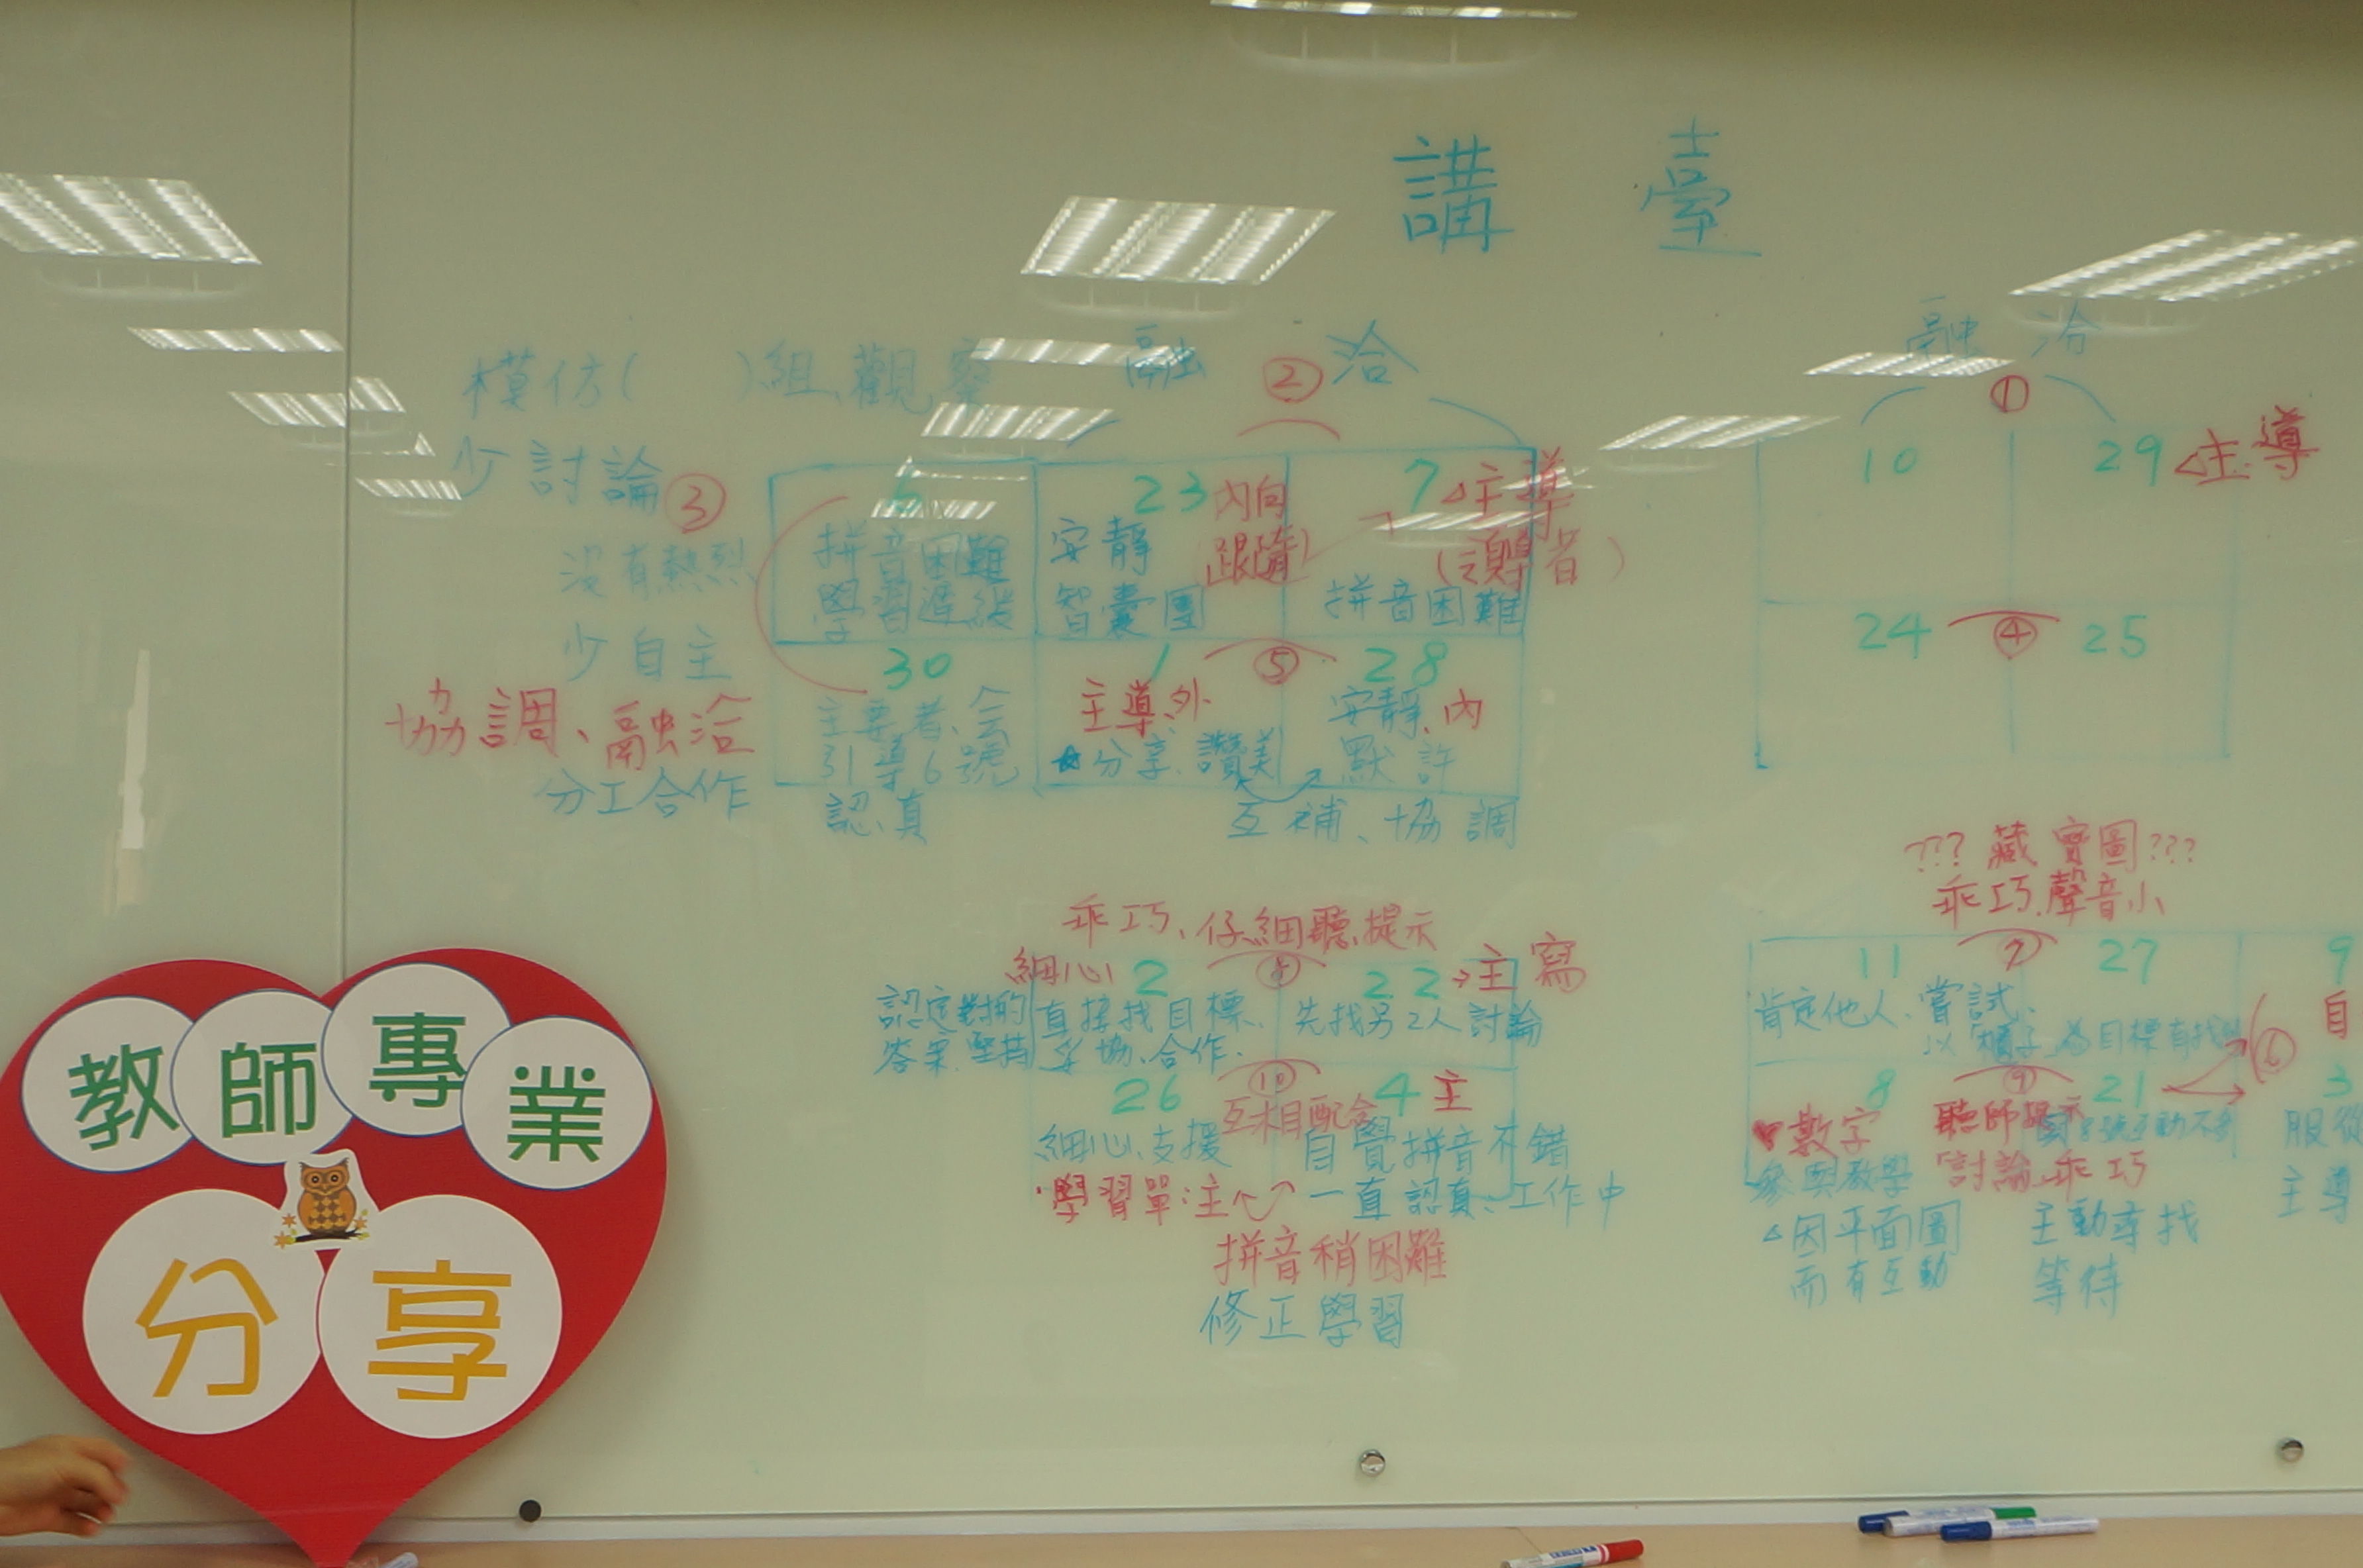 講 臺
模仿( )組、觀察
融 洽
②
少討論
③
沒有熱烈
少自主
協調、融洽
分工合作
6
拼音困難
學習遲緩
23 內向
跟隨
安靜
智囊團
7 主導
拼音困難
30
主要者、会
引導6號
認真
1
主導、外
分享、讚美
⑤
28
安靜、內
默許
互補、協調
融洽
①
10
29 主導
24
④
25
乖巧、仔細聽提示
細心 2
認定對的
答案、堅持
直接找目標、
妥協、合作、
22 主寫
先找另2人討論
26
細心、支援
學習單:主
⑩
互相配合
4 主
自覺拼音不錯
一直認真、工作中
拼音稍困難
修正學習
??? 藏寶圖???
乖巧、聲音小
11
⑦
27
肯定他人、嘗試、
以「櫃子」為目標有找
8
數字
參與教學
因平面圖
而有互動
⑨
聽師提示
討論、乖巧
21
主動尋找
等待
9
自
⑥
3
服從
主導
教師專業
分享